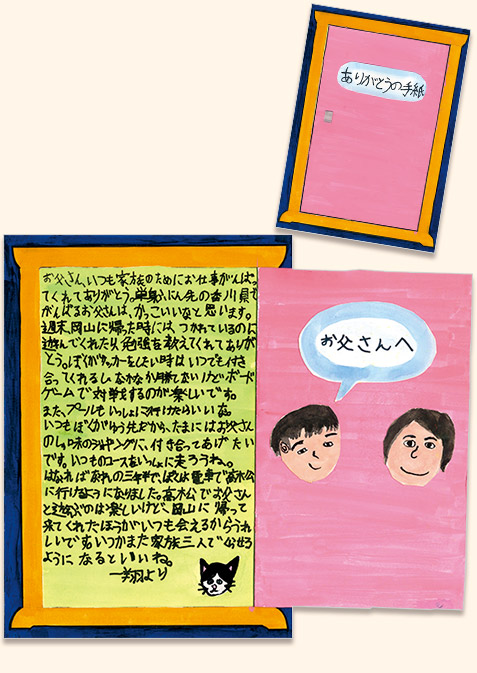 ありがとうの手紙
お父さん、いつも家族のためにお仕事がんばっ
てくれてありがとう。単身ふにん先の香川県で
がんばるお父さんは、かっこいいなと思います。
週末、岡山に帰った時には、つかれているのに
遊んでくれたり、勉強を教えてくれてありが
とう。ぼくがサッカーをしたい時はいつでも付き
合ってくれるし、なかなか勝てないけどボード
ゲームで対戦するのが楽しいです。
また、プールもいっしょに行けたらいいな。
いつもぼくがゆう先だから、たまにはお父さん
のしゅ味のランニングに、付き合ってあげたい
です。いつものコースをいっしょに走ろうね。
はなればなれの三年半で、ぼくは電車で高松
に行けるようになりました。高松でお父さん
と遊ぶのは楽しいけど、岡山に帰って
来てくれたほうがいつも会えるからうれ
しいです。いつかまた家族三人でくらせる
ようになるといいね。
翔より
お父さんへ